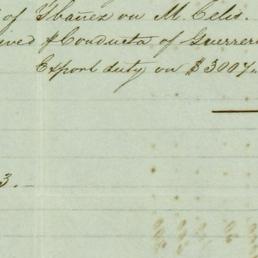 of Ibañez on M. Celis.
ived & Conducta of Guerrer
Export duty on $3007.
3.